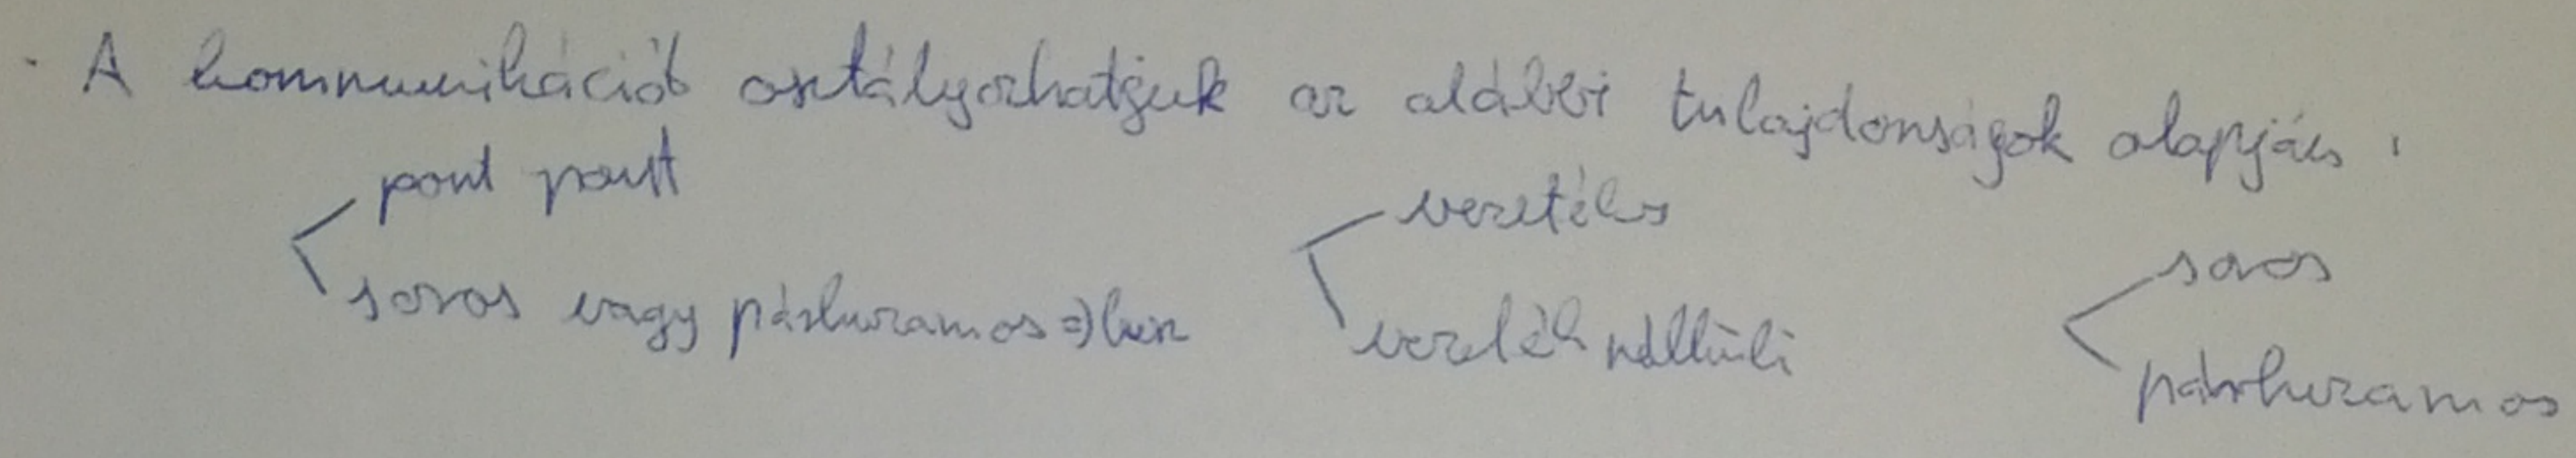 · A kommunikációt osztályozhatjuk az alábbi tulajdonságok alapján:
pont pont
soros vagy párhuzamos => busz
vezetékes
vezeték nélküli
soros
párhuzamos